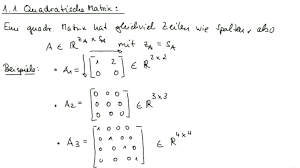 1.1 Quadratische Matrix:
Eine quadr. Matrix hat gleichviel Zeilen wie Spalten, also
A ∈ ℝ^(z_A × s_A) mit z_A = s_A
Beispiele: • A₁ = [1 2; 0 0] ∈ ℝ^(2×2)
• A₂ = [0 0 0; 0 0 0; 0 0 0] ∈ ℝ^(3×3)
• A₃ = [1 0 0 0; 0 1 0 0; 0 0 1 0; 0 0 0 1] ∈ ℝ^(4×4)